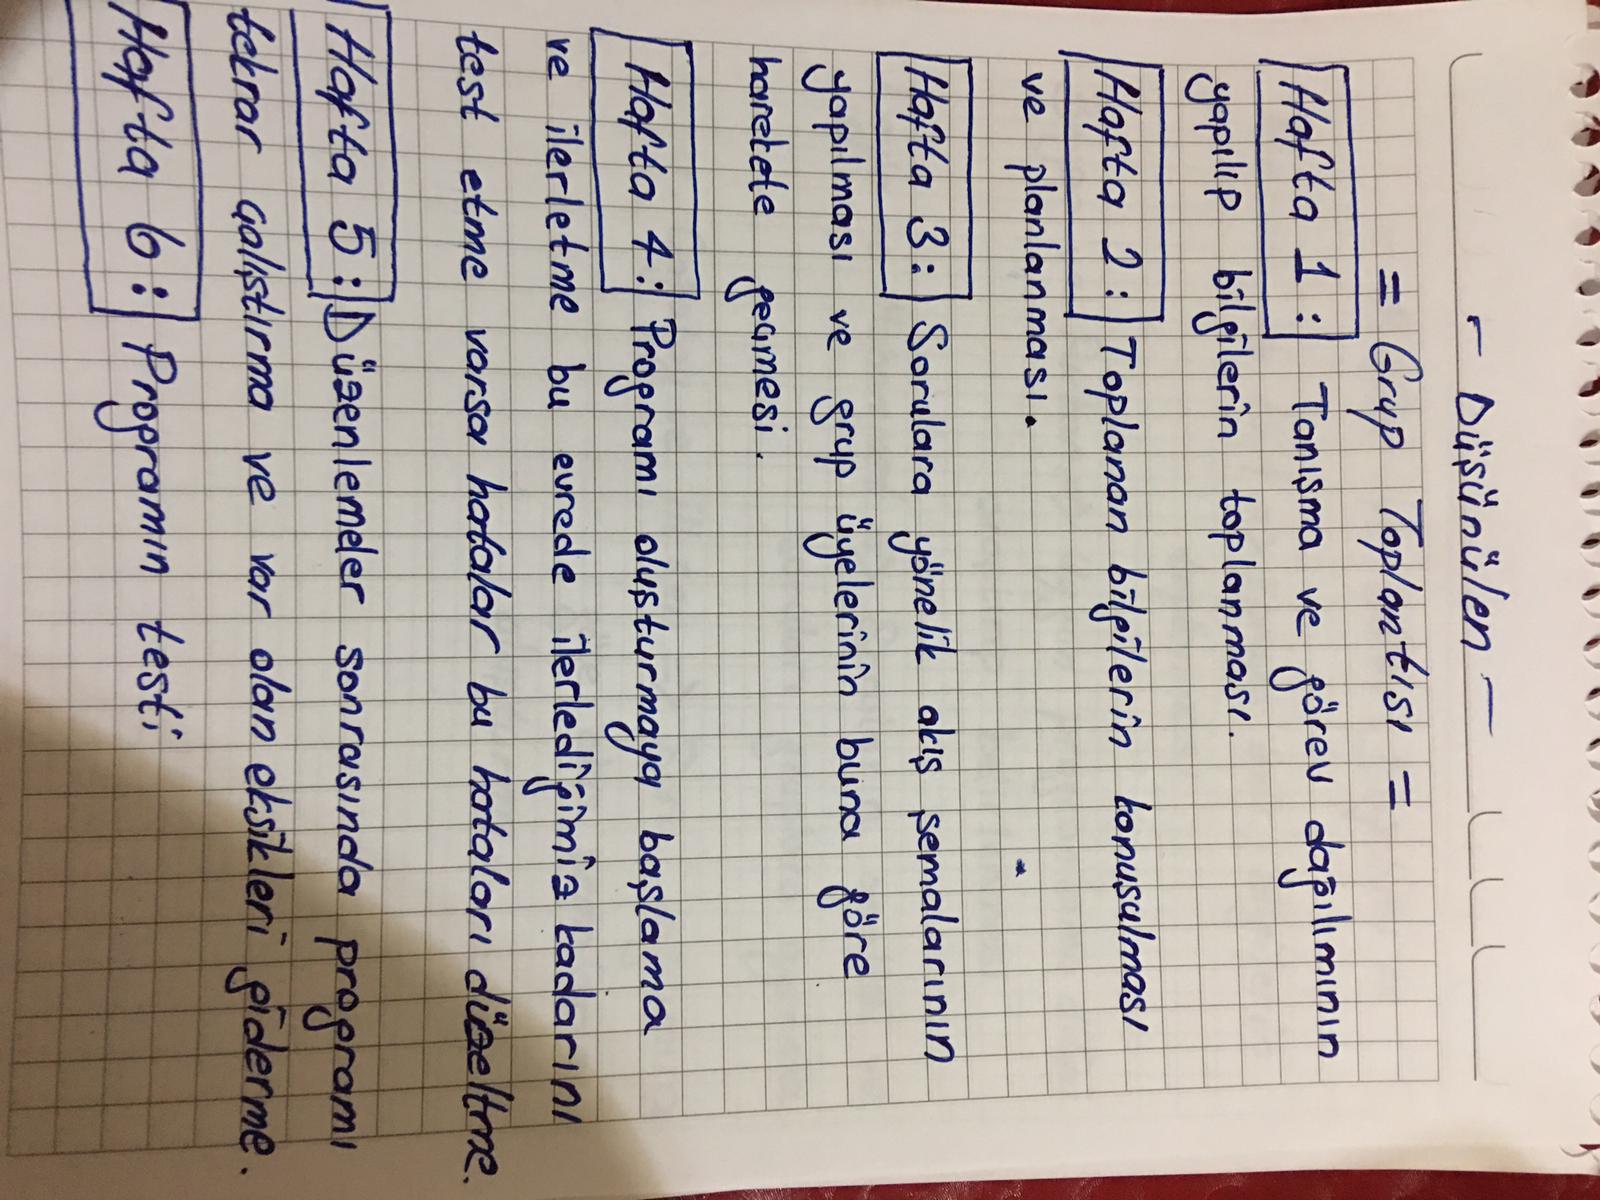 - Düşünülen -
= Grup Toplantısı =
Hafta 1: Tanışma ve görev dağılımının
yapılıp bilgilerin toplanması.
Hafta 2: Toplanan bilgilerin konuşulması
ve planlanması.
Hafta 3: Sorulara yönelik akış şemalarının
yapılması ve grup üyelerinin buna göre
harekete geçmesi.
Hafta 4: Programı oluşturmaya başlama
ve ilerletme bu evrede ilerlediğimiz kadarını
test etme varsa hatalar bu hataları düzeltme.
Hafta 5: Düzenlemeler sonrasında programı
tekrar çalıştırma ve var olan eksikleri giderme.
Hafta 6: Programın testi